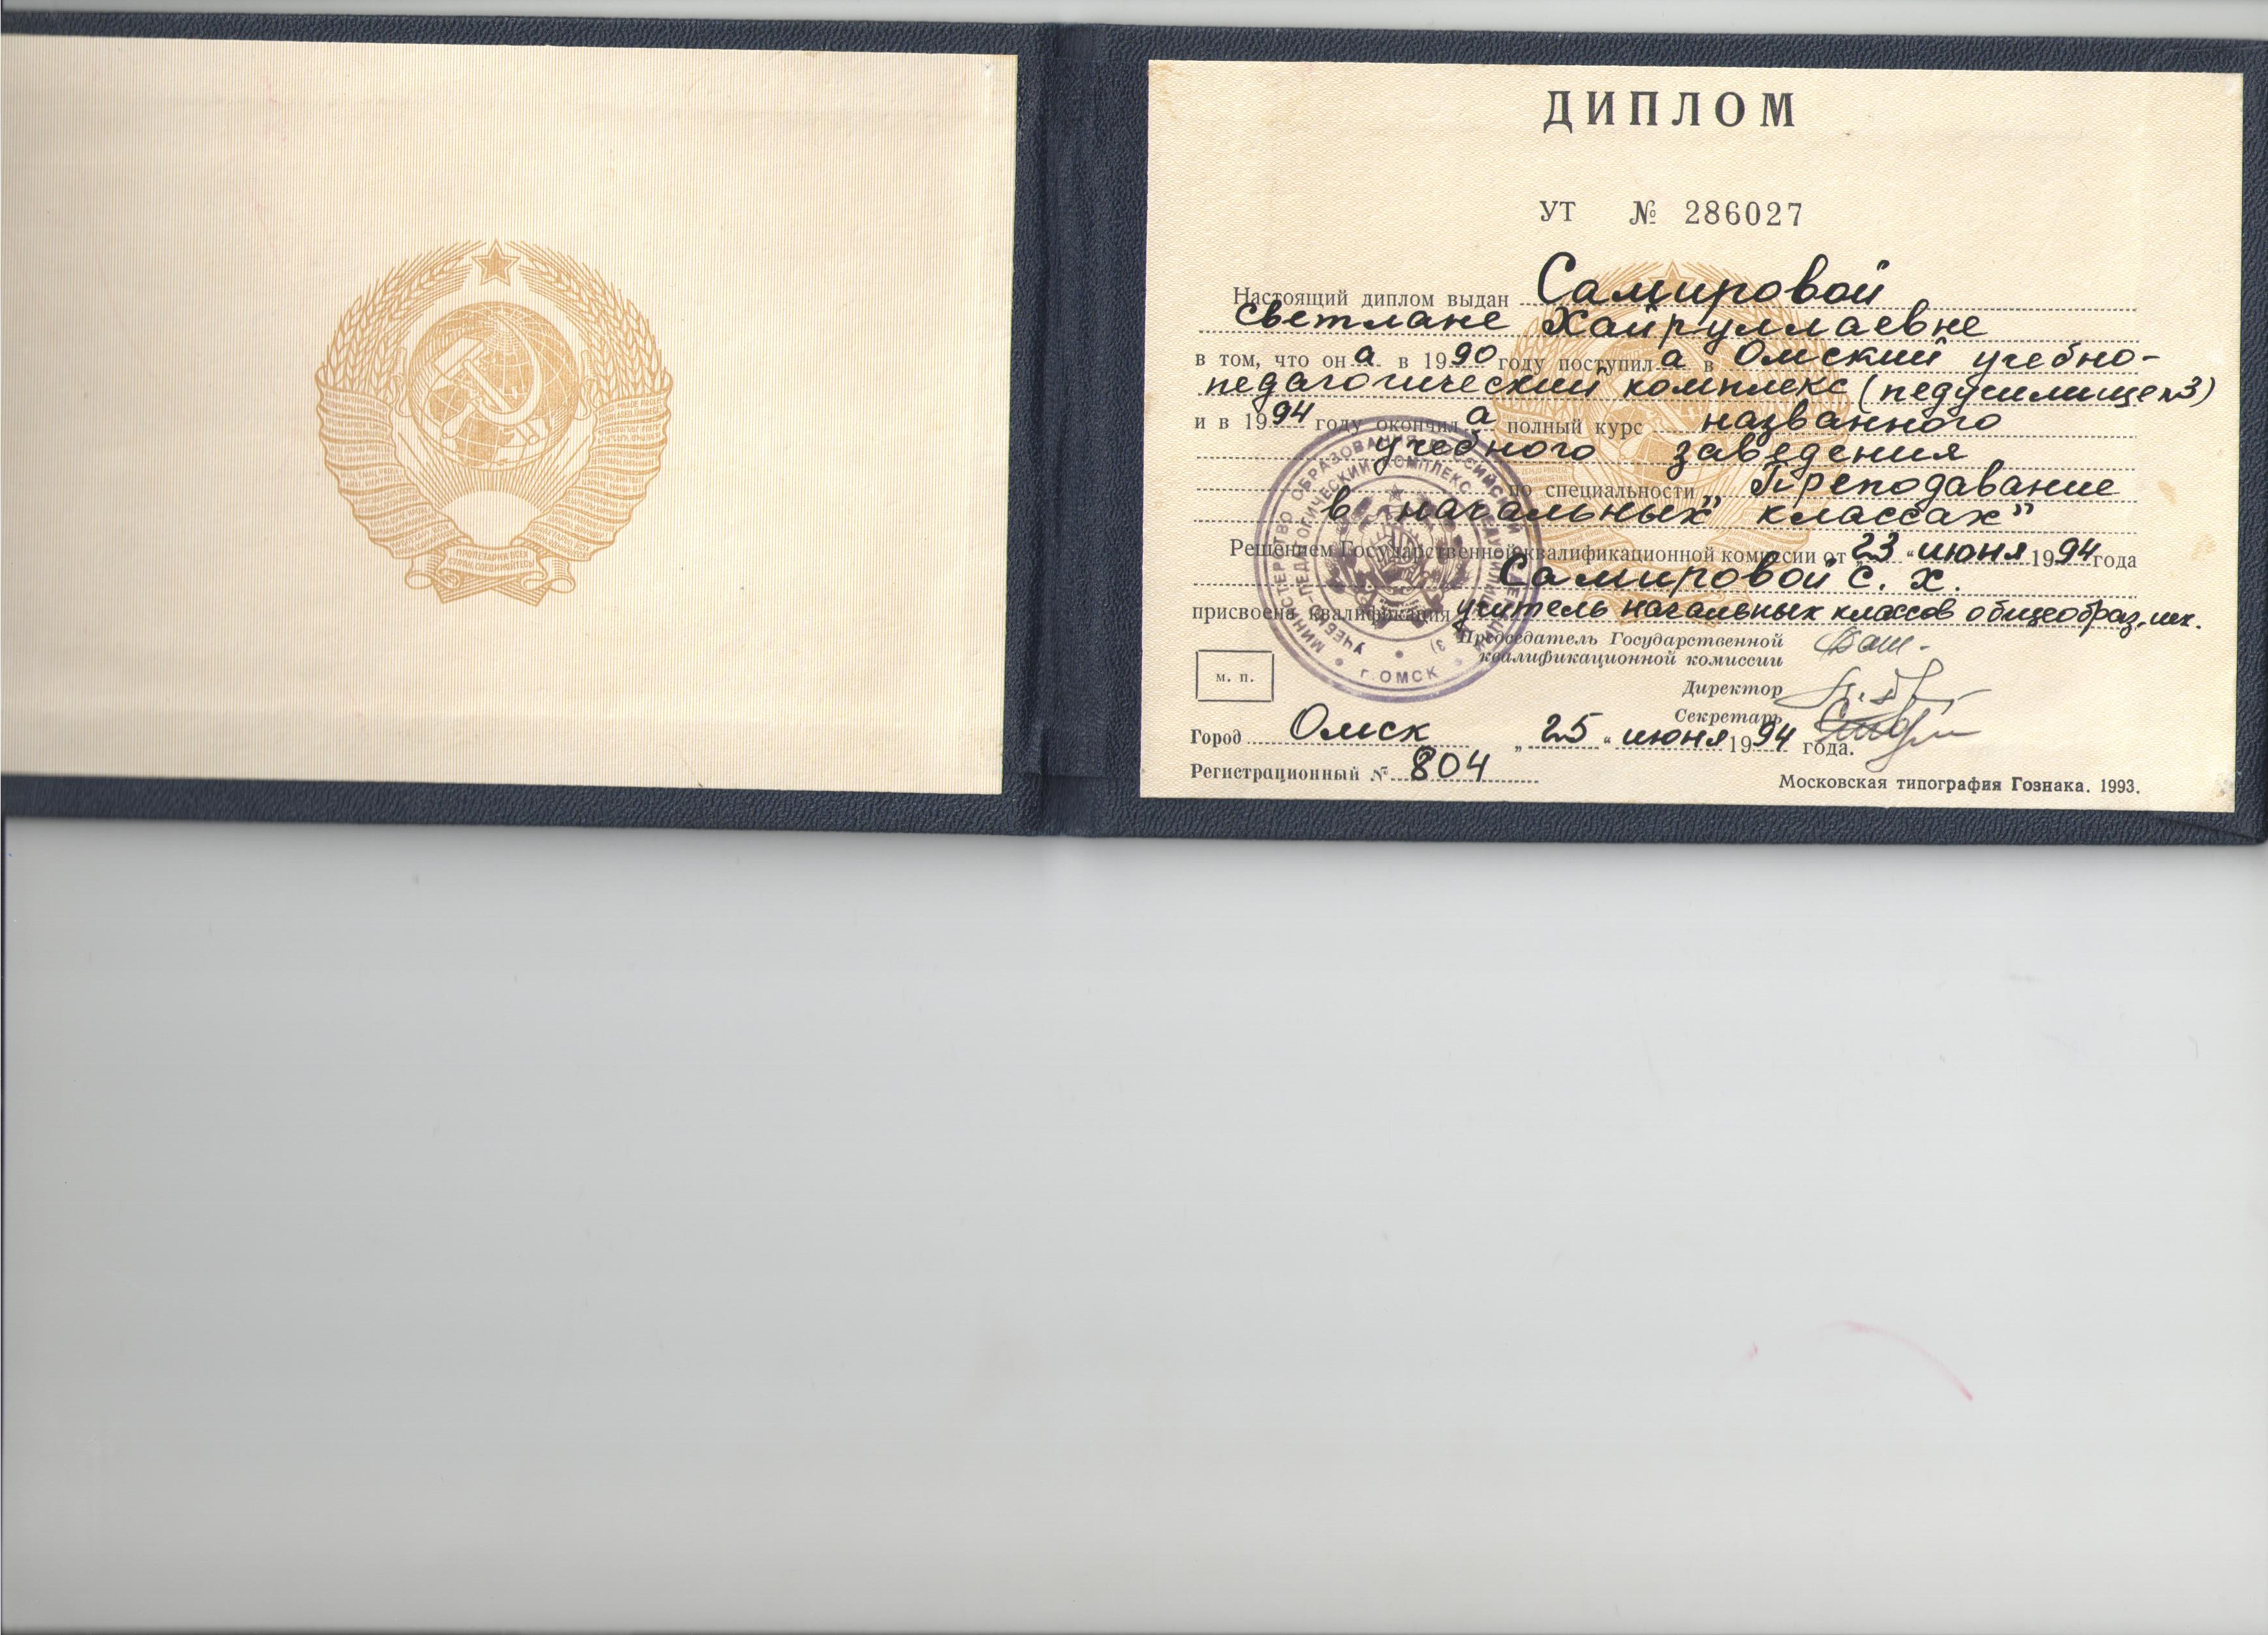 ПРОЛЕТАРИИ ВСЕХ
СТРАН, СОЕДИНЯЙТЕСЬ!
ДИПЛОМ
УТ № 286027
Настоящий диплом выдан Самировой
Светлане Хайруллаевне
в том, что он а в 1990 году поступил а в Омский учебно-
педагогический комплекс (педучилище №3)
и в 1994 году окончил а полный курс названного
учебного заведения
по специальности „Преподавание
в начальных классах”
Решением Государственной квалификационной комиссии от „23“ июня 1994 года
Самировой С. Х.
присвоена квалификация учитель начальных классов общеобраз. шк.
Председатель Государственной
квалификационной комиссии
Директор
Секретарь
м. п.
Город Омск „25“ июня 1994 года.
Регистрационный № 804
Московская типография Гознака. 1993.
МИНИСТЕРСТВО ОБРАЗОВАНИЯ РОССИЙСКОЙ ФЕДЕРАЦИИ
УЧЕБНО-ПЕДАГОГИЧЕСКИЙ КОМПЛЕКС (ПЕДУЧИЛИЩЕ № 3)
г. ОМСК